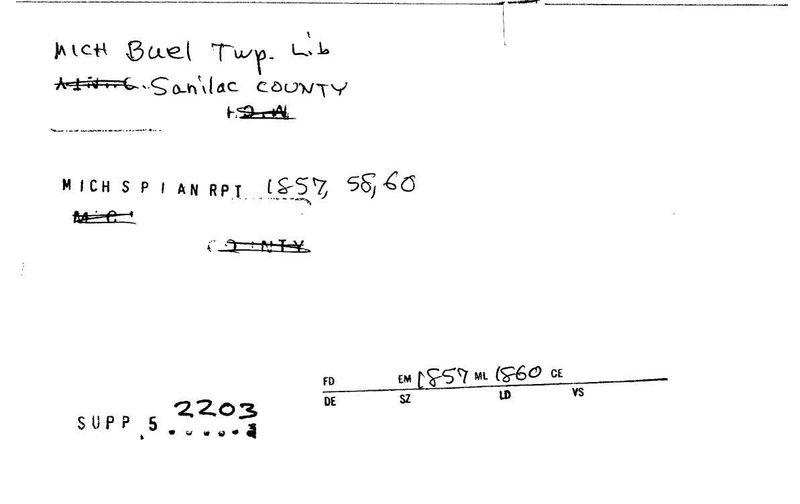 MICH Buel Twp. Lib
Sanilac COUNTY
MICH S P I AN RPT 1857, 58, 60
FD EM 1857 ML 1860 CE
DE SZ LD VS
2203
SUPP. 5 .....